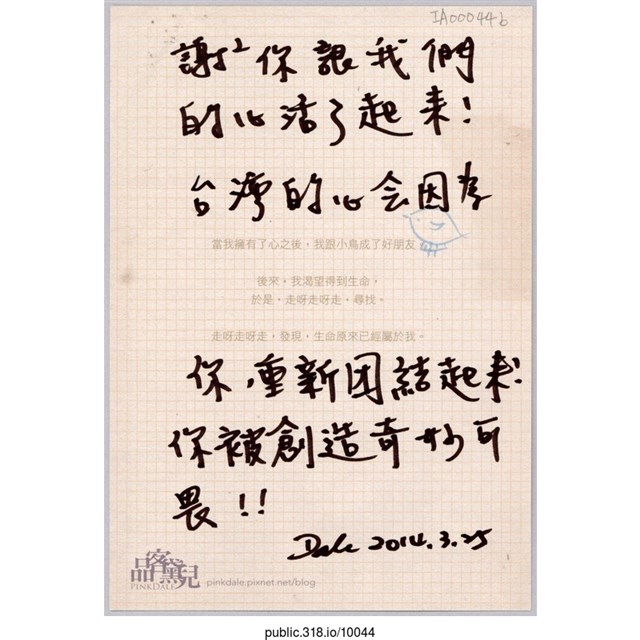 IA000446
謝²你讓我們
的心活了起来!
台灣的心会因為
當我擁有了心之後,我跟小鳥成了好朋友。
後來,我渴望得到生命,
於是,走呀走呀走,尋找。
走呀走呀走,發現,生命原來已經屬於我。
你,重新团結起来!
你被創造奇妙可
畏!!
Dale 2014.3.25
品客黛兒
PINKDALE
pinkdale.pixnet.net/blog
public.318.io/10044